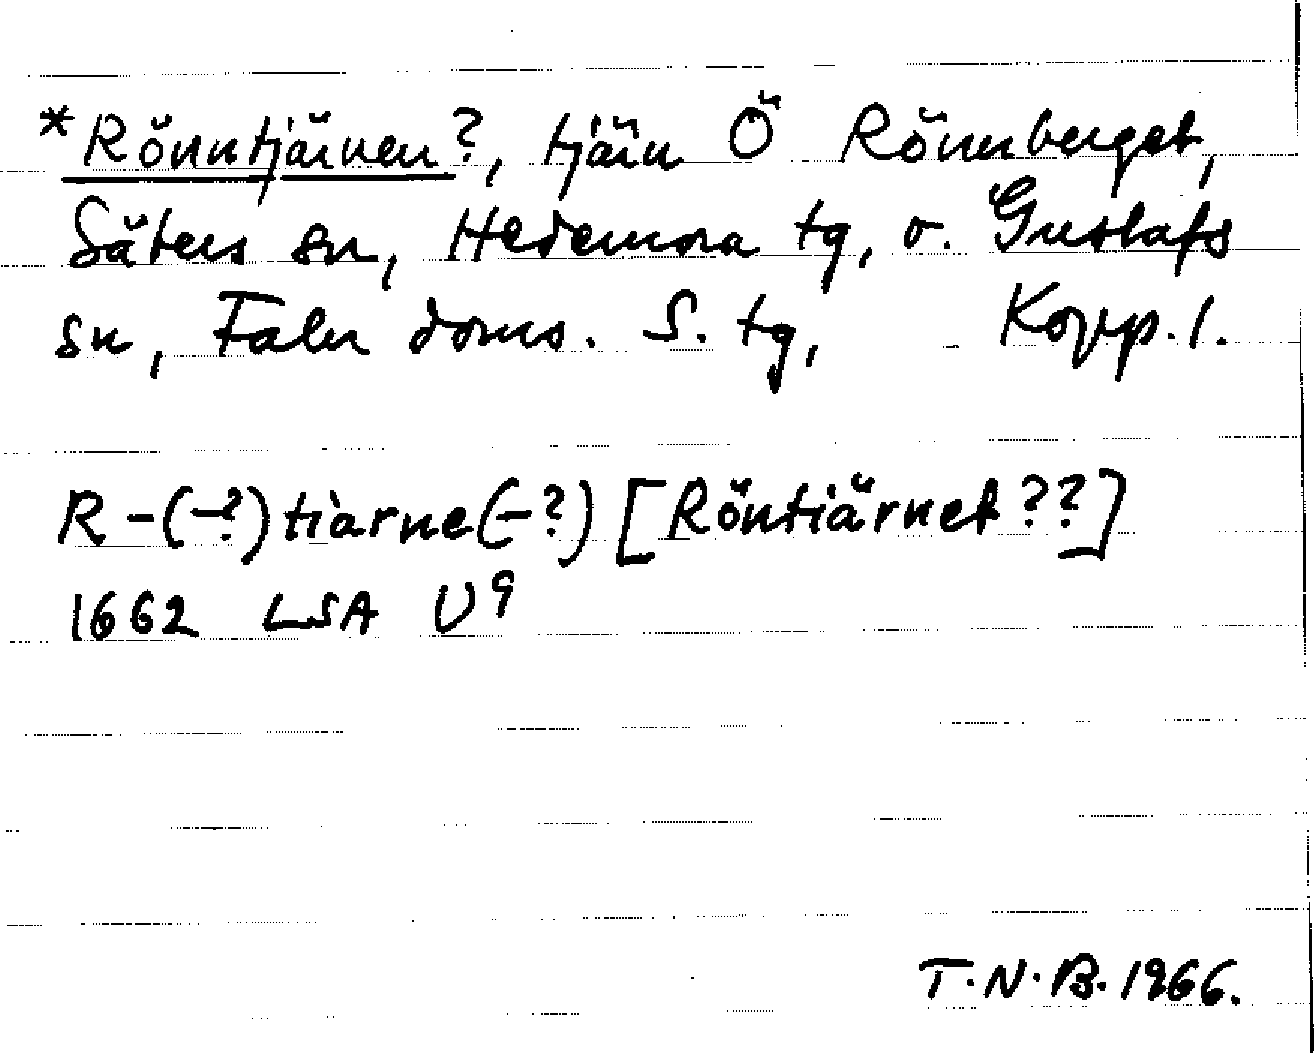 *Rönntjärnen?, tjärn Ö Rönnberget,
Säters sn, Hedemora tg, o. Gustafs
sn, Falu doms. S. tg, Kopp. l.
R-(-?)tiarne(-?) [Röntiärnet??]
1662 LSA U9
T.N.B. 1966.